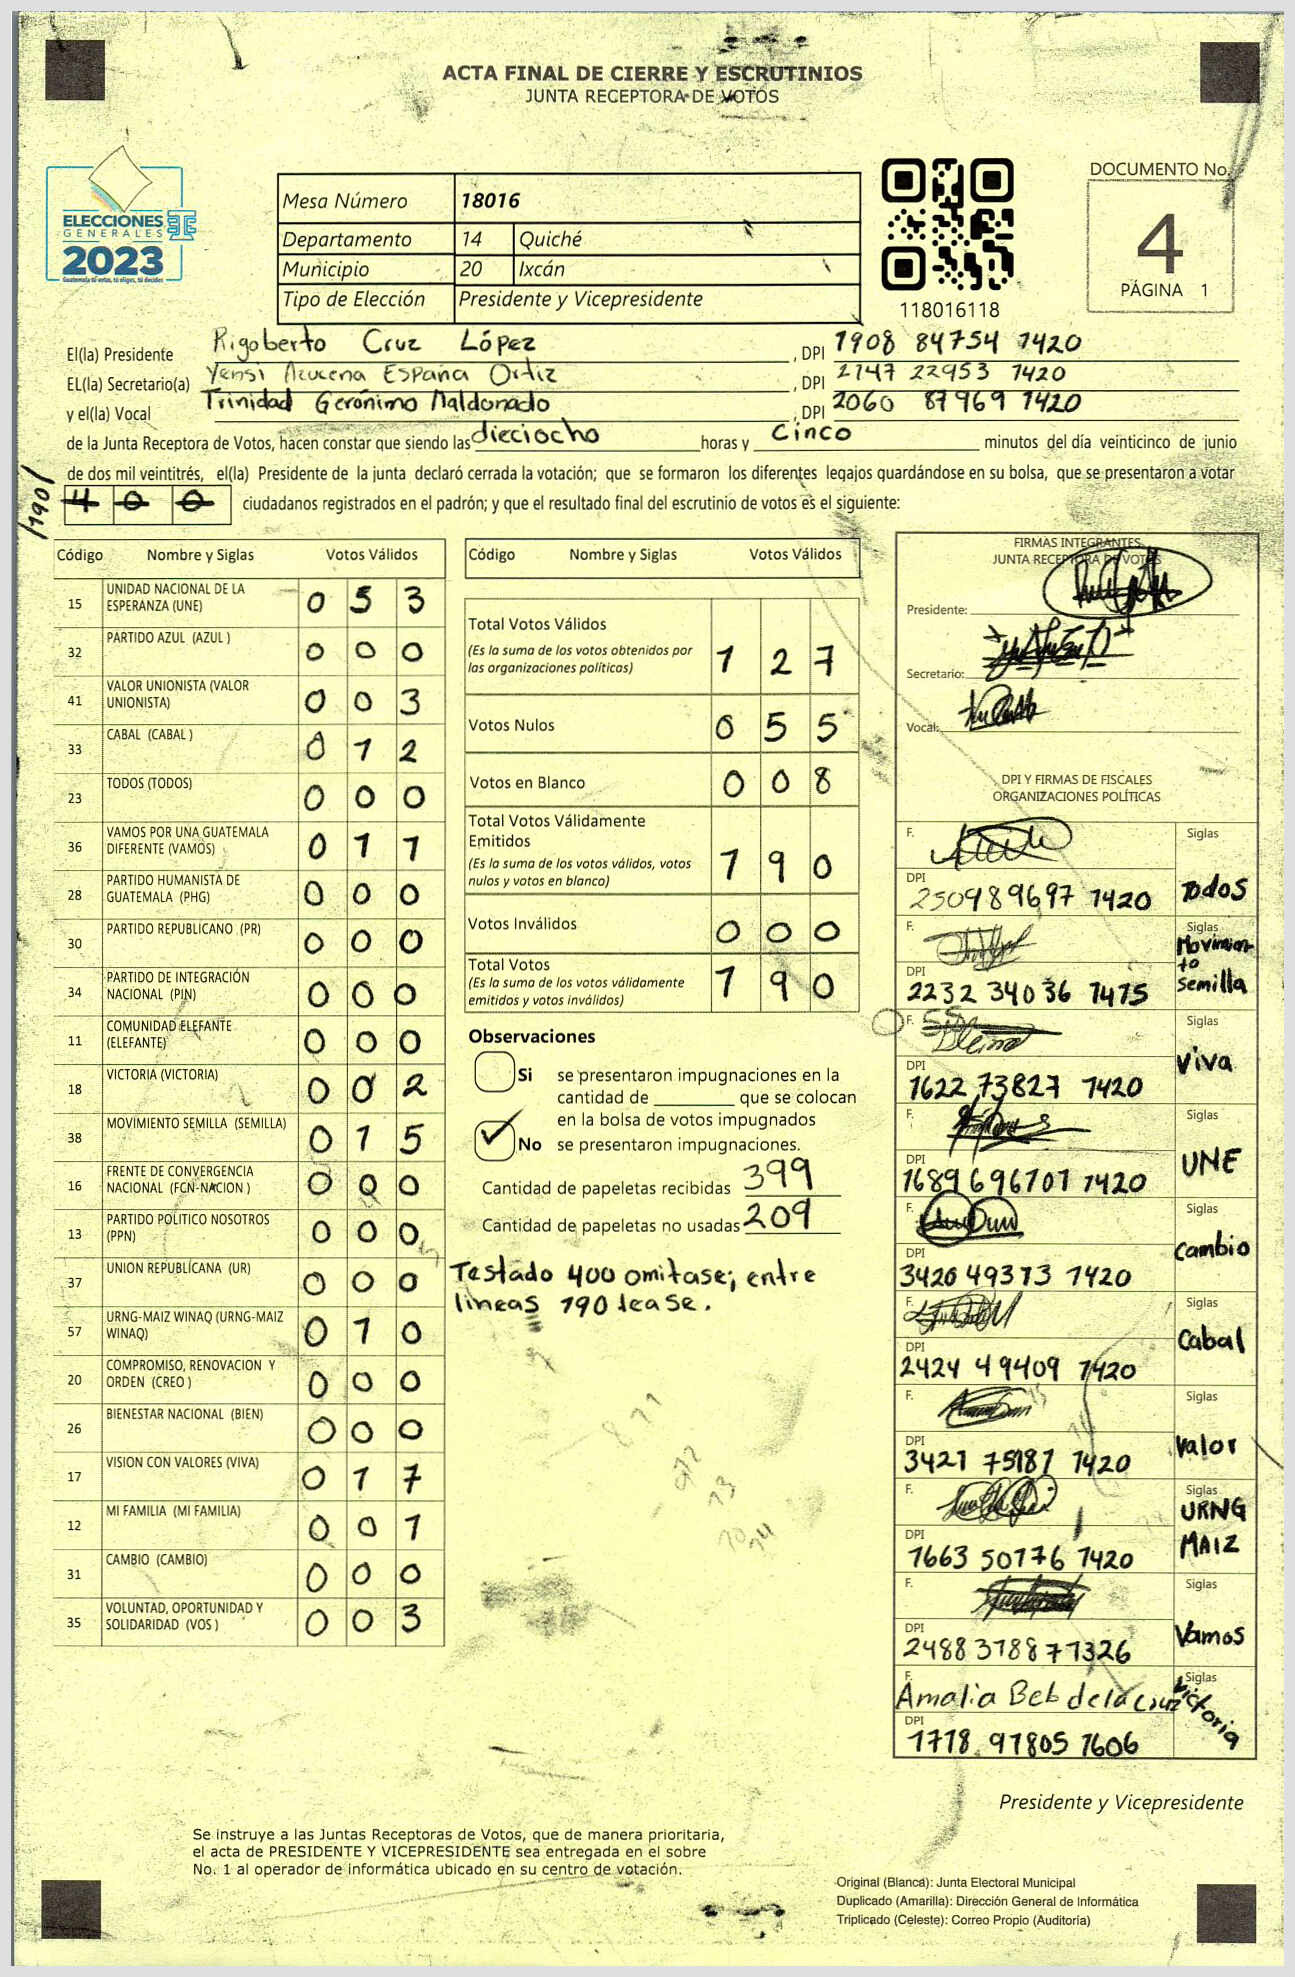 ACTA FINAL DE CIERRE Y ESCRUTINIOS
JUNTA RECEPTORA DE VOTOS
ELECCIONES
GENERALES
2023
Guatemala tú votas, tú eliges, tú decides
Mesa Número 18016
Departamento 14 Quiché
Municipio 20 Ixcán
Tipo de Elección Presidente y Vicepresidente
118016118
DOCUMENTO No.
4
PÁGINA 1
El(la) Presidente Rigoberto Cruz López, DPI 1908 84754 1420
EL(la) Secretario(a) Yensi Azucena España Ortiz, DPI 2147 22953 1420
y el(la) Vocal Trinidad Gerónimo Maldonado, DPI 2060 87969 1420
de la Junta Receptora de Votos, hacen constar que siendo las dieciocho horas y Cinco minutos del día veinticinco de junio
de dos mil veintitrés, el(la) Presidente de la junta declaró cerrada la votación; que se formaron los diferentes legajos guardándose en su bolsa, que se presentaron a votar
/190/
400 ciudadanos registrados en el padrón; y que el resultado final del escrutinio de votos es el siguiente:
Código Nombre y Siglas Votos Válidos
15 UNIDAD NACIONAL DE LA ESPERANZA (UNE) 0 5 3
32 PARTIDO AZUL (AZUL ) 0 0 0
41 VALOR UNIONISTA (VALOR UNIONISTA) 0 0 3
33 CABAL (CABAL ) 0 1 2
23 TODOS (TODOS) 0 0 0
36 VAMOS POR UNA GUATEMALA DIFERENTE (VAMOS) 0 1 1
28 PARTIDO HUMANISTA DE GUATEMALA (PHG) 0 0 0
30 PARTIDO REPUBLICANO (PR) 0 0 0
34 PARTIDO DE INTEGRACIÓN NACIONAL (PIN) 0 0 0
11 COMUNIDAD ELEFANTE (ELEFANTE) 0 0 0
18 VICTORIA (VICTORIA) 0 0 2
38 MOVIMIENTO SEMILLA (SEMILLA) 0 1 5
16 FRENTE DE CONVERGENCIA NACIONAL (FCN-NACION ) 0 0 0
13 PARTIDO POLITICO NOSOTROS (PPN) 0 0 0
37 UNION REPUBLICANA (UR) 0 0 0
57 URNG-MAIZ WINAQ (URNG-MAIZ WINAQ) 0 1 0
20 COMPROMISO, RENOVACION Y ORDEN (CREO ) 0 0 0
26 BIENESTAR NACIONAL (BIEN) 0 0 0
17 VISION CON VALORES (VIVA) 0 1 7
12 MI FAMILIA (MI FAMILIA) 0 0 1
31 CAMBIO (CAMBIO) 0 0 0
35 VOLUNTAD, OPORTUNIDAD Y SOLIDARIDAD (VOS ) 0 0 3
Código Nombre y Siglas Votos Válidos
Total Votos Válidos
(Es la suma de los votos obtenidos por
las organizaciones políticas) 1 2 7
Votos Nulos 0 5 5
Votos en Blanco 0 0 8
Total Votos Válidamente
Emitidos
(Es la suma de los votos válidos, votos
nulos y votos en blanco) 1 9 0
Votos Inválidos 0 0 0
Total Votos
(Es la suma de los votos válidamente
emitidos y votos inválidos) 1 9 0
Observaciones
Si se presentaron impugnaciones en la
cantidad de ________ que se colocan
en la bolsa de votos impugnados
No se presentaron impugnaciones.
Cantidad de papeletas recibidas 399
Cantidad de papeletas no usadas 209
Testado 400 omitase; entre
lineas 190 lease.
FIRMAS INTEGRANTES
JUNTA RECEPTORA DE VOTOS
Presidente:
Secretario:
Vocal:
DPI Y FIRMAS DE FISCALES
ORGANIZACIONES POLÍTICAS
F. Siglas
DPI 250989697 1420 Todos
F. Siglas
DPI 2232 34036 1415 Movimiento semilla
F. Siglas
DPI 1622 73827 1420 Viva
F. Siglas
DPI 1689 696701 1420 UNE
F. Siglas
DPI 3420 49373 1420 Cambio
F. Siglas
DPI 2424 49409 1420 Cabal
F. Siglas
DPI 3421 75187 1420 Valor
F. Siglas
DPI 1663 50176 1420 URNG MAIZ
F. Siglas
DPI 2488 3788 71326 Vamos
F. Amalia Beb de la Cruz Siglas
DPI 1778 97805 1606 Victoria
Presidente y Vicepresidente
Se instruye a las Juntas Receptoras de Votos, que de manera prioritaria,
el acta de PRESIDENTE Y VICEPRESIDENTE sea entregada en el sobre
No. 1 al operador de informática ubicado en su centro de votación.
Original (Blanca): Junta Electoral Municipal
Duplicado (Amarilla): Dirección General de Informática
Triplicado (Celeste): Correo Propio (Auditoría)